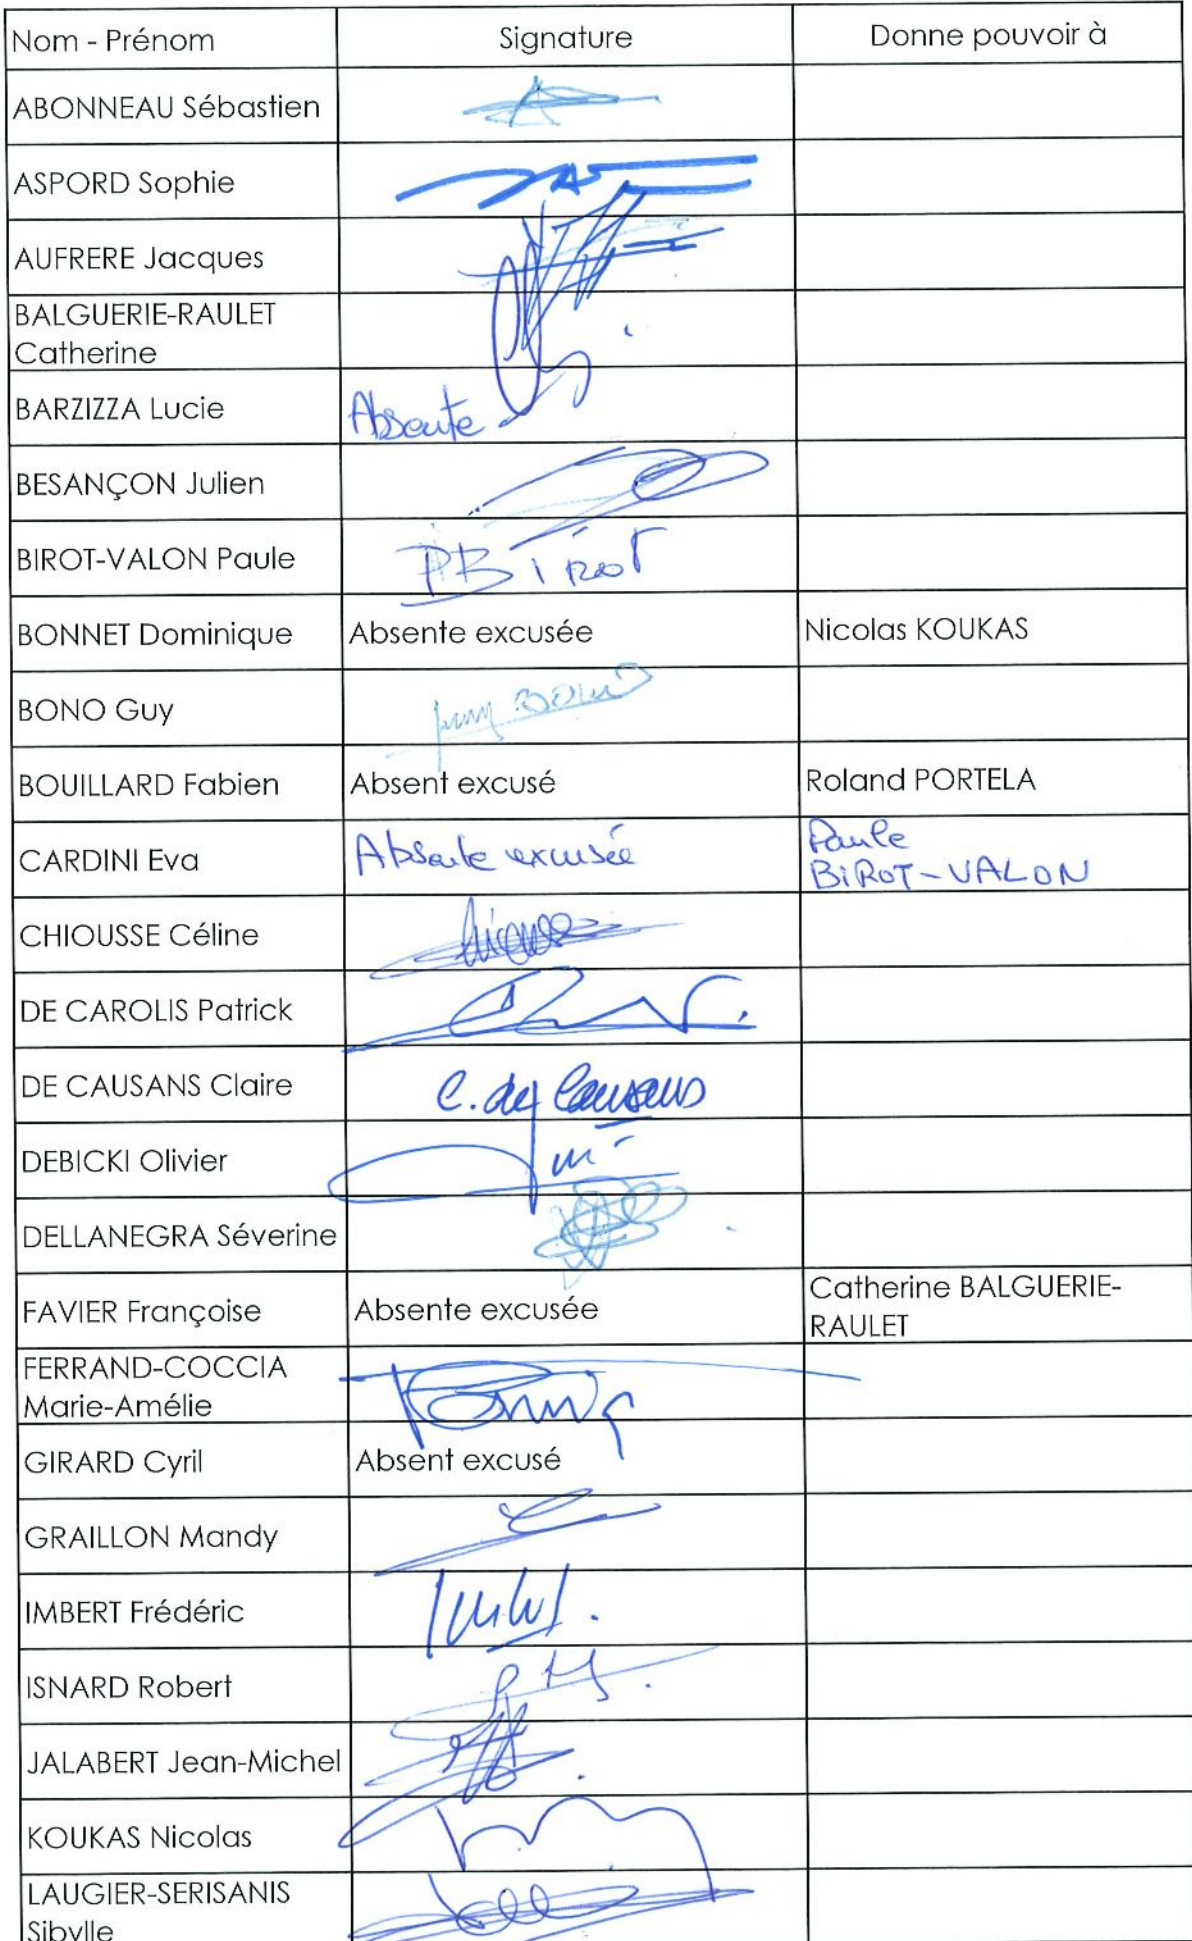 Nom - Prénom Signature Donne pouvoir à
ABONNEAU Sébastien
ASPORD Sophie
AUFRERE Jacques
BALGUERIE-RAULET
Catherine
BARZIZZA Lucie Absente
BESANÇON Julien
BIROT-VALON Paule PBirot
BONNET Dominique Absente excusée Nicolas KOUKAS
BONO Guy BONO
BOUILLARD Fabien Absent excusé Roland PORTELA
CARDINI Eva Absente excusée Paule
BiROT-VALON
CHIOUSSE Céline
DE CAROLIS Patrick
DE CAUSANS Claire C. de Causans
DEBICKI Olivier
DELLANEGRA Séverine
FAVIER Françoise Absente excusée Catherine BALGUERIE-
RAULET
FERRAND-COCCIA
Marie-Amélie
GIRARD Cyril Absent excusé
GRAILLON Mandy
IMBERT Frédéric
ISNARD Robert
JALABERT Jean-Michel
KOUKAS Nicolas
LAUGIER-SERISANIS
Sibylle